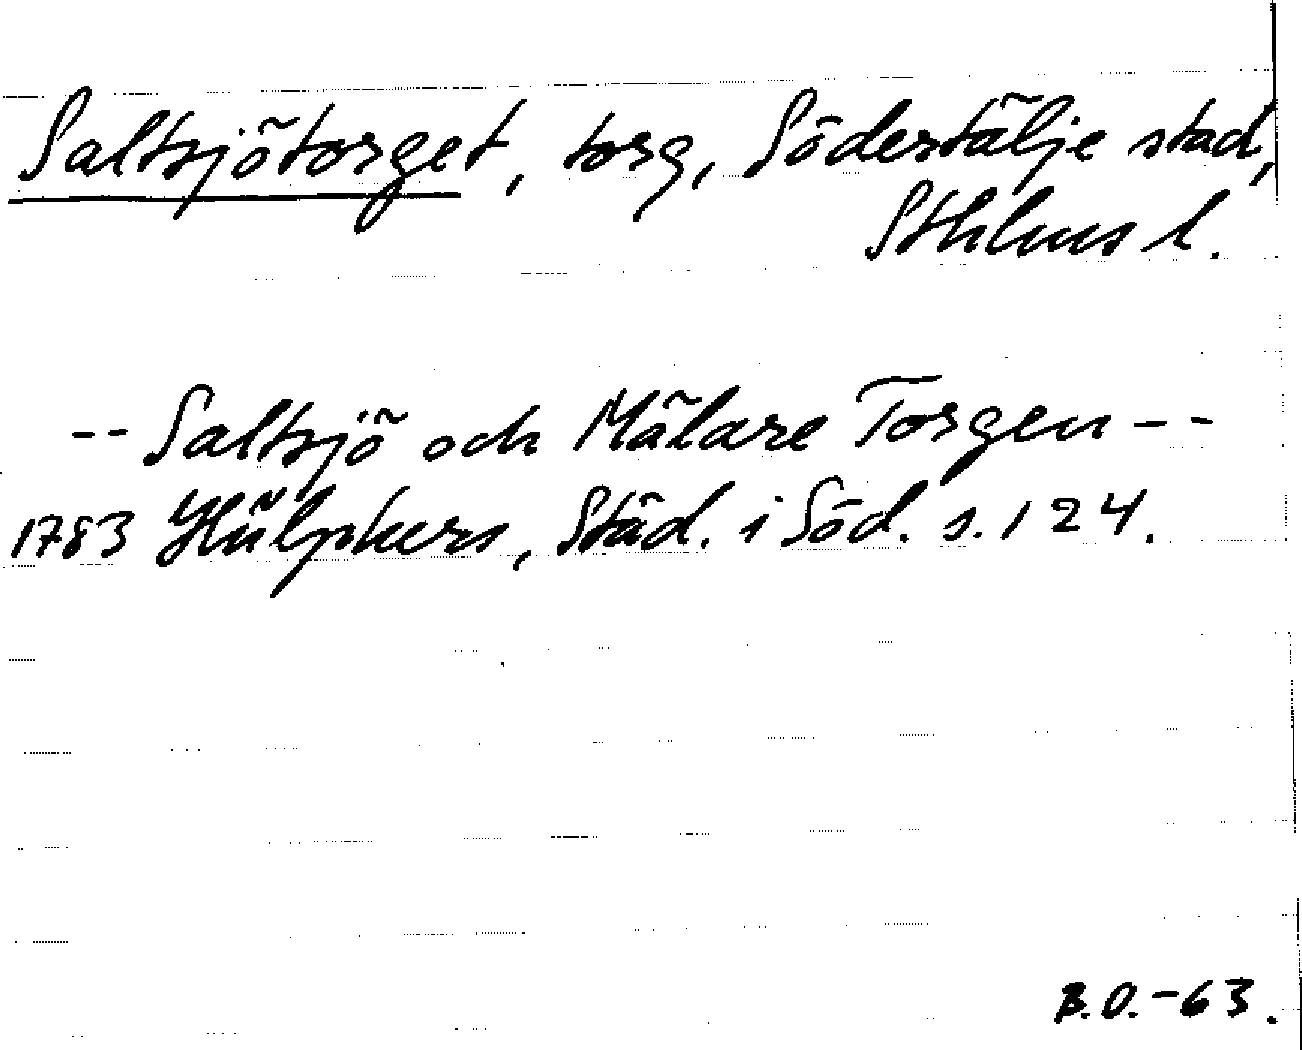 Saltsjötorget, torg, Södertälje stad,
Sthlms l.
-- Saltsjö och Mälare Torgen --
1783 Hülphers, Städ. i Söd. s. 124.
B.O.-63.